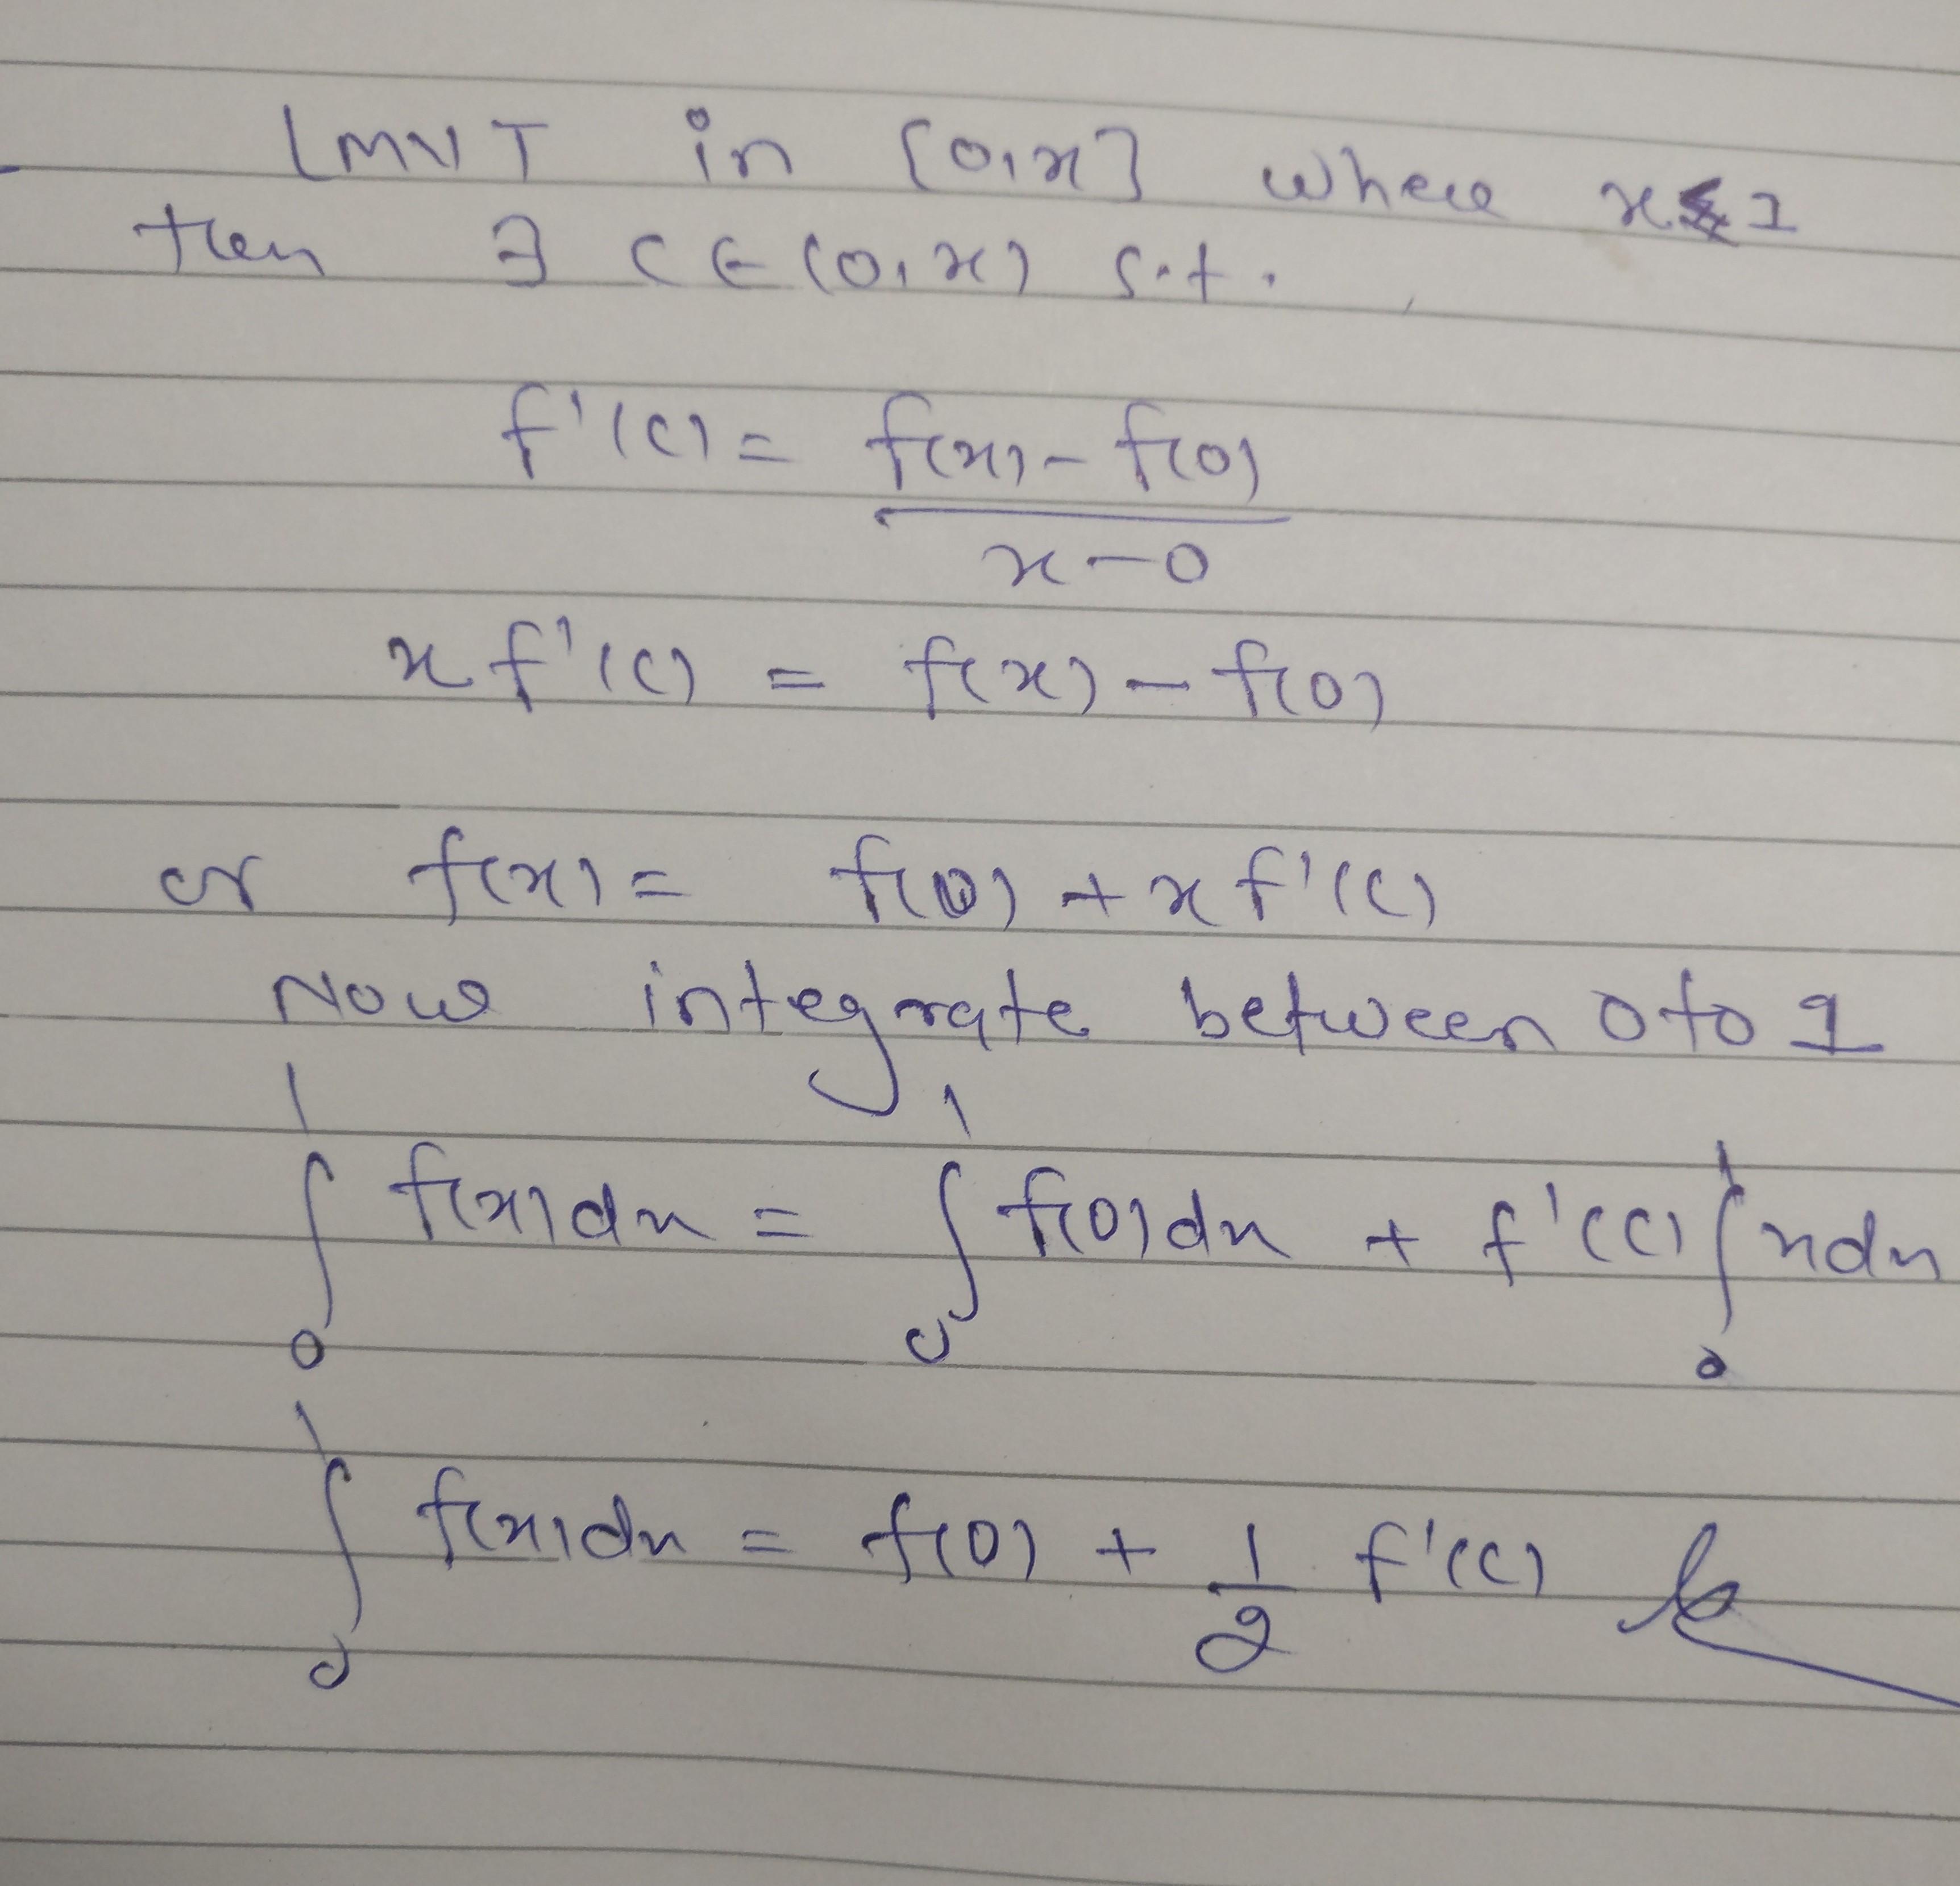 LMVT in [0,x] where x≤1
then ∃ c∈(0,x) s.t.
f'(c) = f(x)-f(0)
x-0
x f'(c) = f(x)-f(0)
or f(x) = f(0) + x f'(c)
Now integrate between 0 to 1
∫₀¹ f(x)dx = ∫₀¹ f(0)dx + f'(c) ∫₀¹ x dx
∫₀¹ f(x)dx = f(0) + 1/2 f'(c)